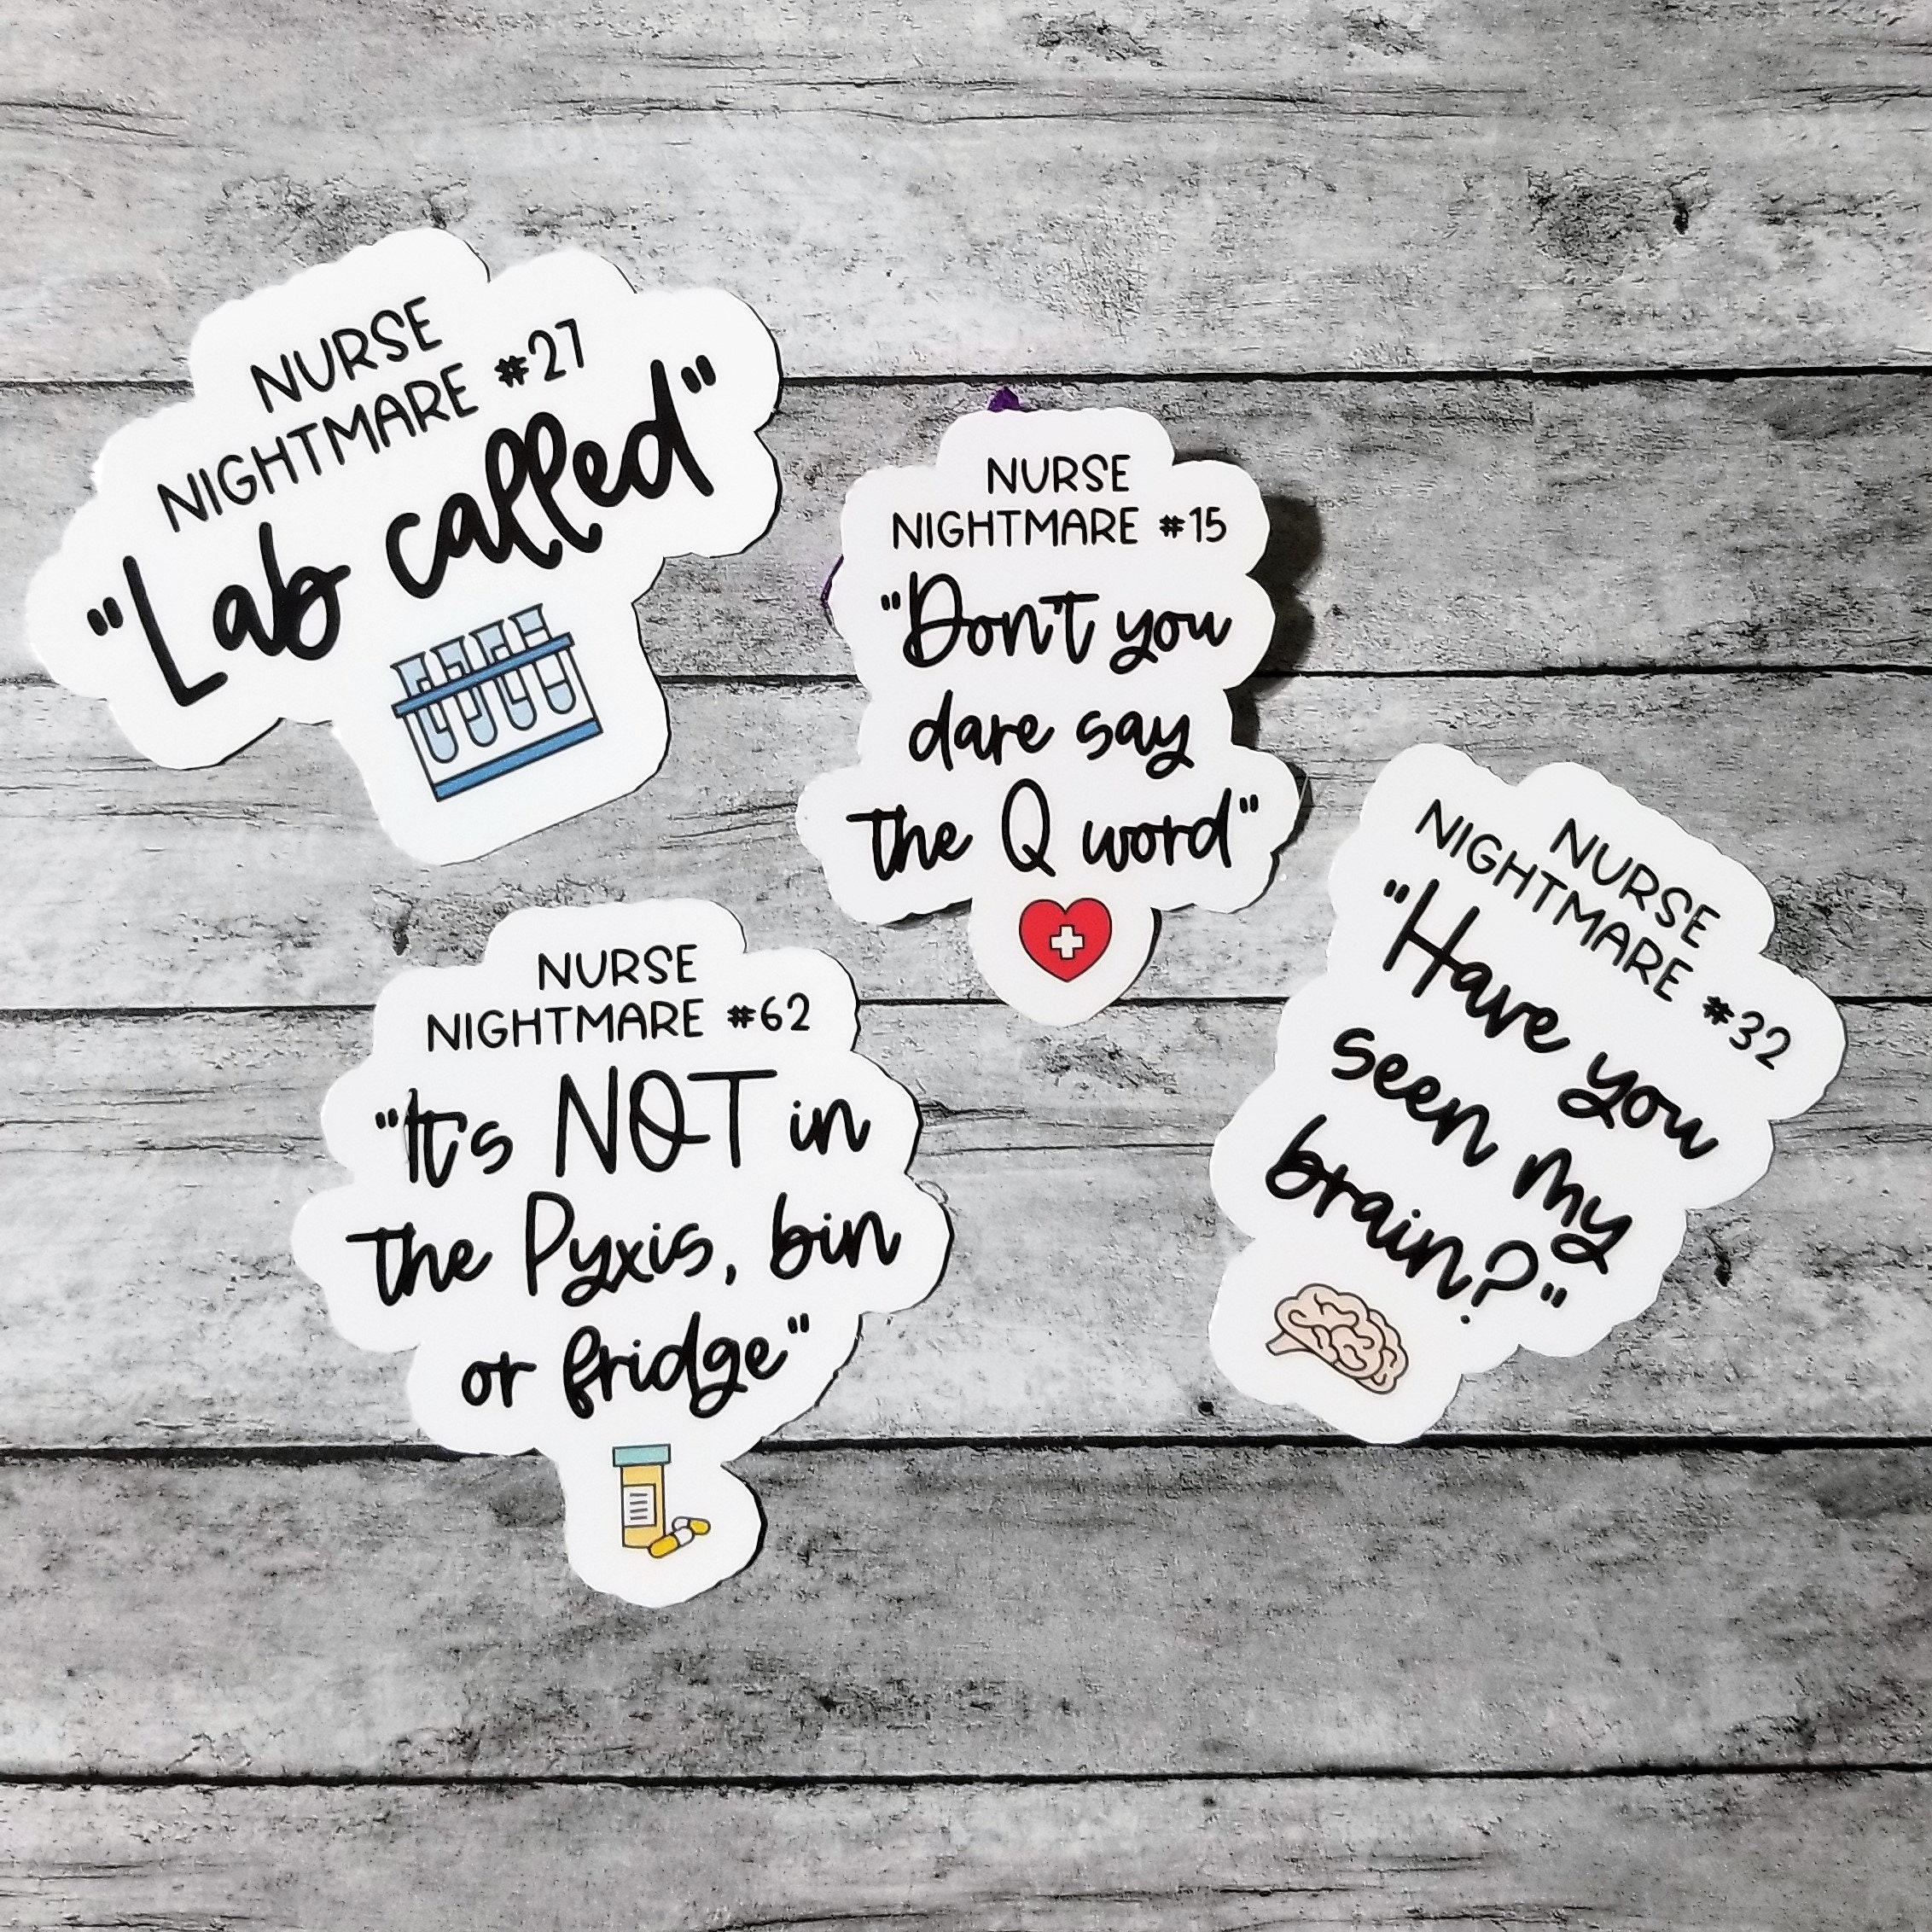 NURSE
NIGHTMARE #27
"Lab called"
NURSE
NIGHTMARE #15
"Don't you
dare say
the Q word"
NURSE
NIGHTMARE #62
"It's NOT in
the Pyxis, bin
or fridge"
NURSE
NIGHTMARE #32
"Have you
seen my
brain?"